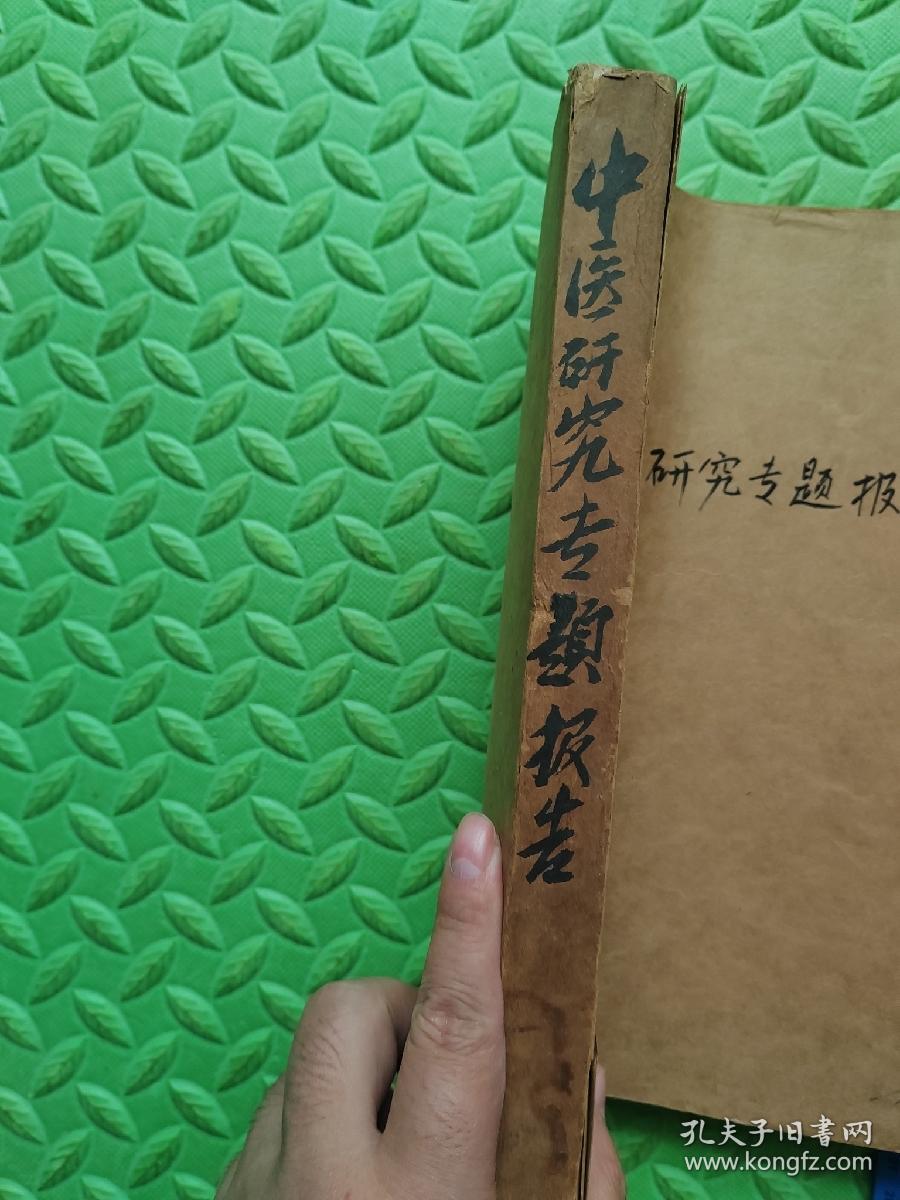 中医研究专题报告
研究专题报
孔夫子旧書网
www.kongfz.com